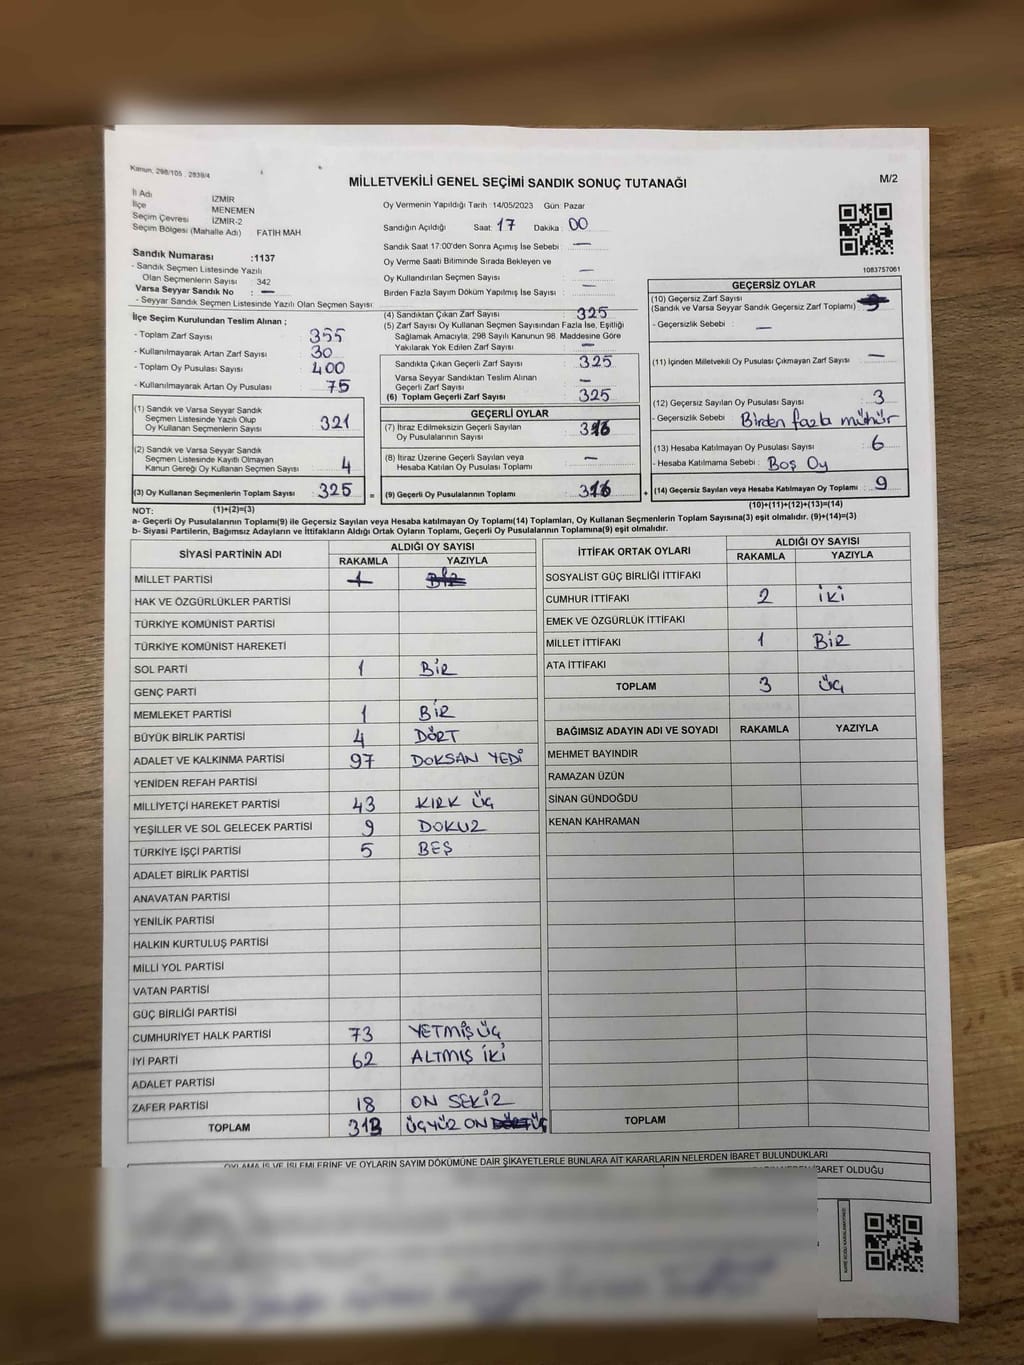 Kanun, 298/105 , 2839/4
MİLLETVEKİLİ GENEL SEÇİMİ SANDIK SONUÇ TUTANAĞI
M/2
İl Adı İZMİR
İlçe MENEMEN
Seçim Çevresi İZMİR-2
Seçim Bölgesi (Mahalle Adı) FATİH MAH
Sandık Numarası :1137
- Sandık Seçmen Listesinde Yazılı
Olan Seçmenlerin Sayısı 342
Varsa Seyyar Sandık No : —
- Seyyar Sandık Seçmen Listesinde Yazılı Olan Seçmen Sayısı:
Oy Vermenin Yapıldığı Tarih :14/05/2023 Gün: Pazar
Sandığın Açıldığı Saat: 17 Dakika: 00
Sandık Saat 17:00'den Sonra Açımış İse Sebebi : —
Oy Verme Saati Bitiminde Sırada Bekleyen ve
Oy Kullandırılan Seçmen Sayısı : —
Birden Fazla Sayım Döküm Yapılmış İse Sayısı : —
1083757061
İlçe Seçim Kurulundan Teslim Alınan ;
- Toplam Zarf Sayısı : 355
- Kullanılmayarak Artan Zarf Sayısı : 30
- Toplam Oy Pusulası Sayısı : 400
- Kullanılmayarak Artan Oy Pusulası : 75
(1) Sandık ve Varsa Seyyar Sandık
Seçmen Listesinde Yazılı Olup
Oy Kullanan Seçmenlerin Sayısı : 321
(2) Sandık ve Varsa Seyyar Sandık
Seçmen Listesinde Kayıtlı Olmayan
Kanun Gereği Oy Kullanan Seçmen Sayısı : 4
(3) Oy Kullanan Seçmenlerin Toplam Sayısı : 325 =
(1)+(2)=(3)
(4) Sandıktan Çıkan Zarf Sayısı : 325
(5) Zarf Sayısı Oy Kullanan Seçmen Sayısından Fazla İse, Eşitliği
Sağlamak Amacıyla, 298 Sayılı Kanunun 98. Maddesine Göre
Yakılarak Yok Edilen Zarf Sayısı : —
Sandıkta Çıkan Geçerli Zarf Sayısı : 325
Varsa Seyyar Sandıktan Teslim Alınan
Geçerli Zarf Sayısı : —
(6) Toplam Geçerli Zarf Sayısı : 325
GEÇERLİ OYLAR
(7) İtiraz Edilmeksizin Geçerli Sayılan
Oy Pusulalarının Sayısı : 316
(8) İtiraz Üzerine Geçerli Sayılan veya
Hesaba Katılan Oy Pusulası Toplamı : —
(9) Geçerli Oy Pusulalarının Toplamı : 316 +
GEÇERSİZ OYLAR
(10) Geçersiz Zarf Sayısı
(Sandık ve Varsa Seyyar Sandık Geçersiz Zarf Toplamı) :
- Geçersizlik Sebebi : —
(11) İçinden Milletvekili Oy Pusulası Çıkmayan Zarf Sayısı : —
(12) Geçersiz Sayılan Oy Pusulası Sayısı : 3
- Geçersizlik Sebebi : Birden fazla mühür
(13) Hesaba Katılmayan Oy Pusulası Sayısı : 6
- Hesaba Katılmama Sebebi : Boş Oy
(14) Geçersiz Sayılan veya Hesaba Katılmayan Oy Toplamı : 9
(10)+(11)+(12)+(13)=(14)
NOT:
a- Geçerli Oy Pusulalarının Toplamı(9) ile Geçersiz Sayılan veya Hesaba katılmayan Oy Toplamı(14) Toplamları, Oy Kullanan Seçmenlerin Toplam Sayısına(3) eşit olmalıdır. (9)+(14)=(3)
b- Siyasi Partilerin, Bağımsız Adayların ve İttifakların Aldığı Ortak Oyların Toplamı, Geçerli Oy Pusulalarının Toplamına(9) eşit olmalıdır.
SİYASİ PARTİNİN ADI ALDIĞI OY SAYISI
RAKAMLA YAZIYLA
MİLLET PARTİSİ 1 BİR
HAK VE ÖZGÜRLÜKLER PARTİSİ
TÜRKİYE KOMÜNİST PARTİSİ
TÜRKİYE KOMÜNİST HAREKETİ
SOL PARTİ 1 BİR
GENÇ PARTİ
MEMLEKET PARTİSİ 1 BİR
BÜYÜK BİRLİK PARTİSİ 4 DÖRT
ADALET VE KALKINMA PARTİSİ 97 DOKSAN YEDİ
YENİDEN REFAH PARTİSİ
MİLLİYETÇİ HAREKET PARTİSİ 43 KIRK ÜÇ
YEŞİLLER VE SOL GELECEK PARTİSİ 9 DOKUZ
TÜRKİYE İŞÇİ PARTİSİ 5 BEŞ
ADALET BİRLİK PARTİSİ
ANAVATAN PARTİSİ
YENİLİK PARTİSİ
HALKIN KURTULUŞ PARTİSİ
MİLLİ YOL PARTİSİ
VATAN PARTİSİ
GÜÇ BİRLİĞİ PARTİSİ
CUMHURİYET HALK PARTİSİ 73 YETMİŞ ÜÇ
İYİ PARTİ 62 ALTMIŞ İKİ
ADALET PARTİSİ
ZAFER PARTİSİ 18 ON SEKİZ
TOPLAM 313 ÜÇYÜZ ON DÖRT ÜÇ
İTTİFAK ORTAK OYLARI ALDIĞI OY SAYISI
RAKAMLA YAZIYLA
SOSYALİST GÜÇ BİRLİĞİ İTTİFAKI
CUMHUR İTTİFAKI 2 İKİ
EMEK VE ÖZGÜRLÜK İTTİFAKI
MİLLET İTTİFAKI 1 BİR
ATA İTTİFAKI
TOPLAM 3 ÜÇ
BAĞIMSIZ ADAYIN ADI VE SOYADI RAKAMLA YAZIYLA
MEHMET BAYINDIR
RAMAZAN ÜZÜN
SİNAN GÜNDOĞDU
KENAN KAHRAMAN
TOPLAM
OYLAMA İŞ VE İŞLEMLERİNE VE OYLARIN SAYIM DÖKÜMÜNE DAİR ŞİKAYETLERLE BUNLARA AİT KARARLARIN NELERDEN İBARET BULUNDUKLARI
İBARET OLDUĞU